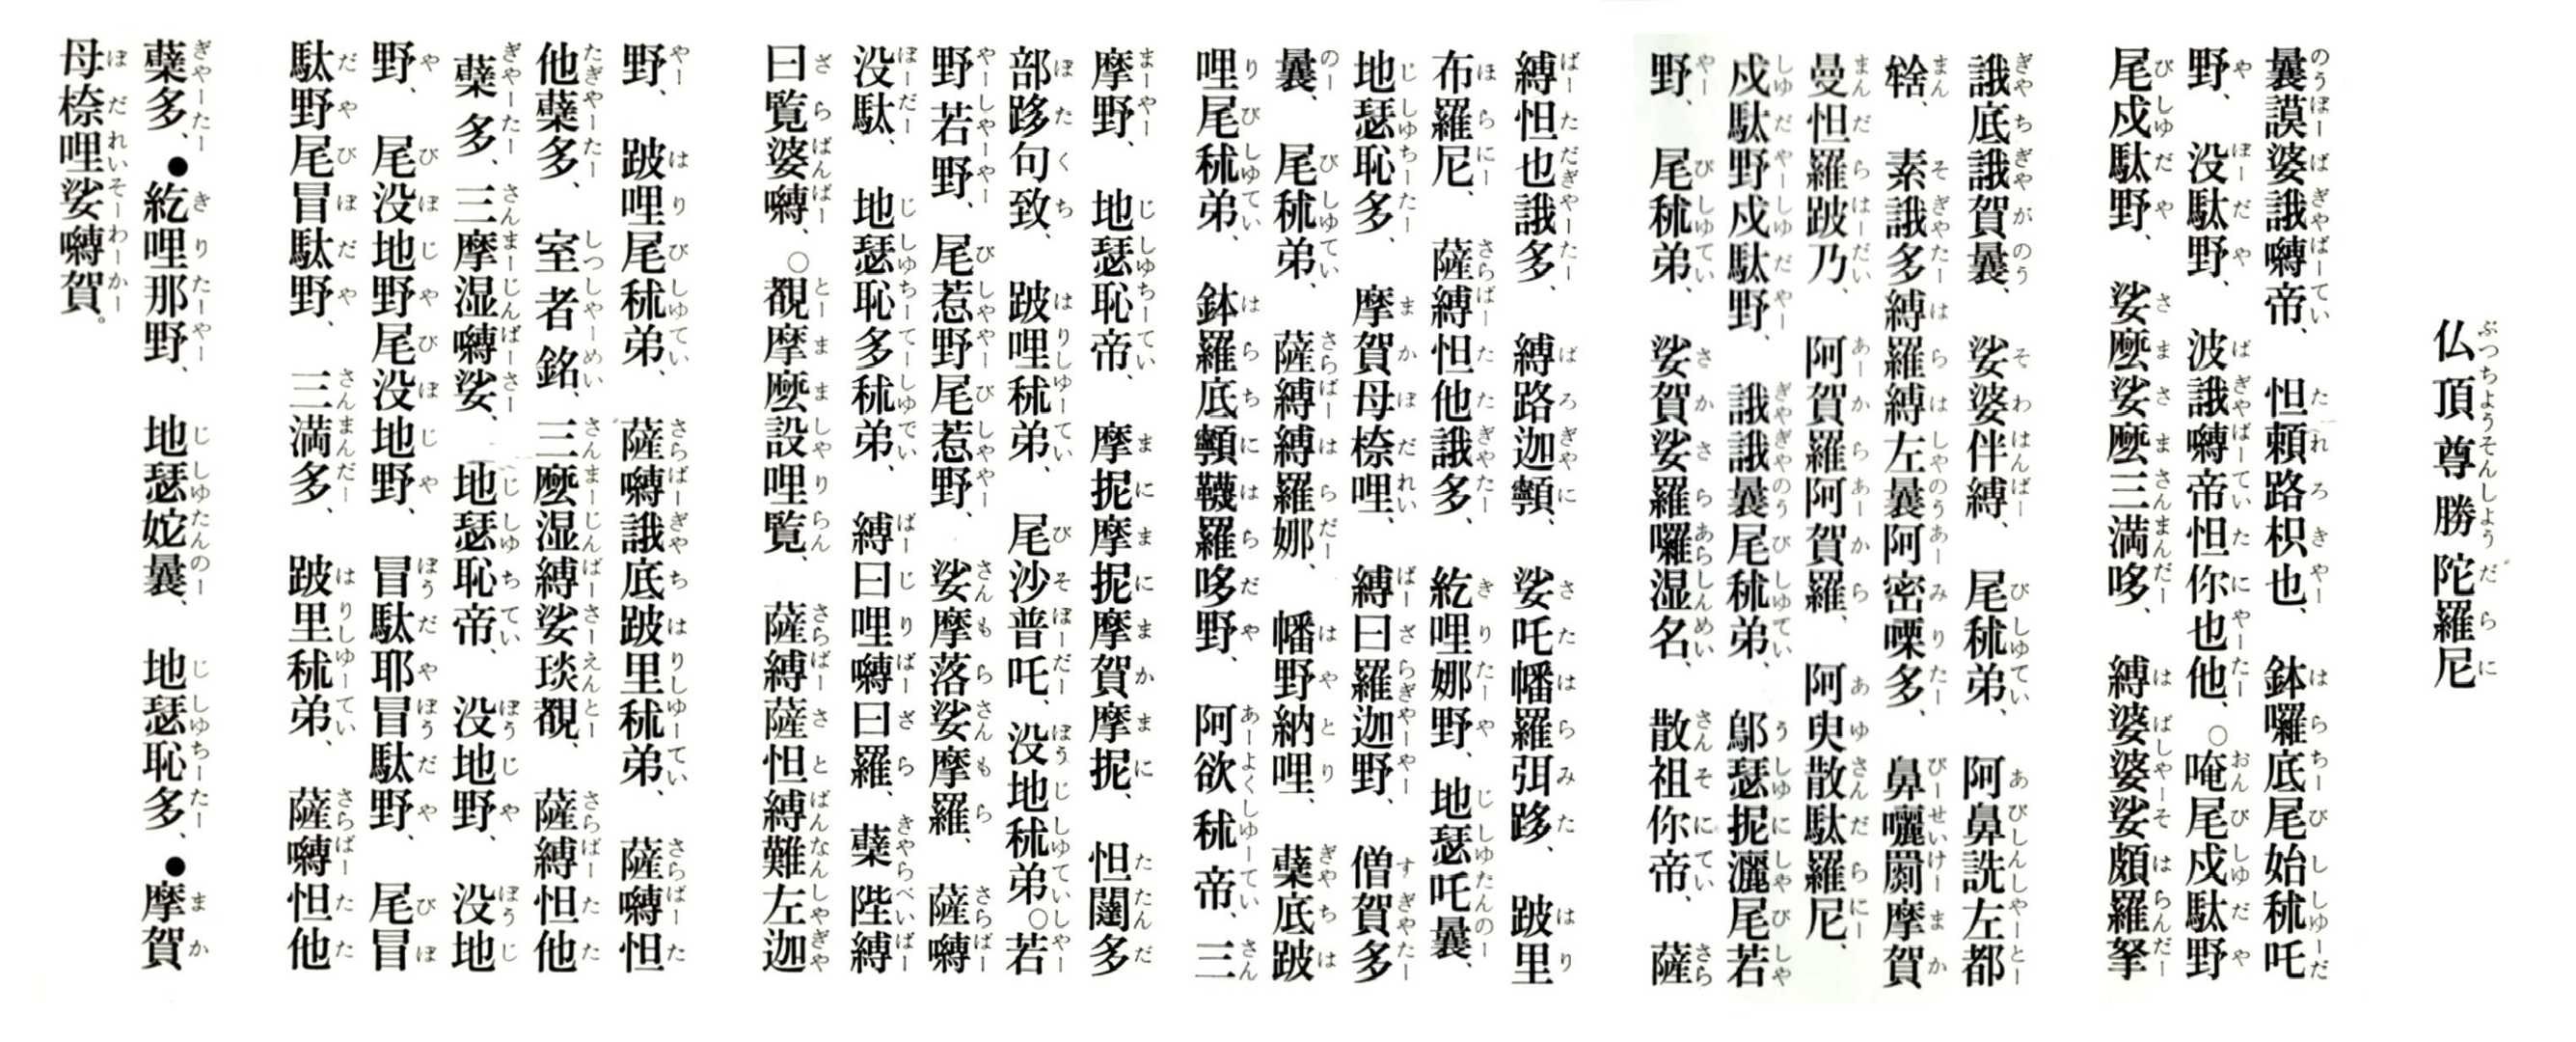 仏頂尊勝陀羅尼
曩謨婆誐嚩帝、怛頼路枳也、鉢囉底尾始秫吒
野、没駄野、波誐嚩帝怛你也他、○唵尾戍駄野
尾戍駄野、娑麼娑麼三満哆、縛婆婆娑頗羅拏
誐底誐賀曩、娑婆伴縛、尾秫弟、阿鼻詵左都
𤚥、素誐多縛羅縛左曩阿密㗚多、鼻囇罽摩賀
曼怛羅跛乃、阿賀羅阿賀羅、阿臾散駄羅尼、
戍駄野戍駄野、誐誐曩尾秫弟、鄔瑟抳灑尾若
野、尾秫弟、娑賀娑羅囉湿名、散祖你帝、薩
縛怛也誐多、縛路迦顊、娑吒幡羅弭跢、跛里
布羅尼、薩縛怛他誐多、紇哩娜野、地瑟吒曩、
地瑟恥多、摩賀母捺哩、縛曰羅迦野、僧賀多
曩、尾秫弟、薩縛縛羅娜、幡野納哩、蘖底跛
哩尾秫弟、鉢羅底顊韈羅哆野、阿欲秫帝、三
摩野、地瑟恥帝、摩抳摩抳摩賀摩抳、怛闥多
部跢句致、跛哩秫弟、尾沙普吒、没地秫弟○若
野若野、尾惹野尾惹野、娑摩落娑摩羅、薩嚩
没駄、地瑟恥多秫弟、縛曰哩嚩曰羅、蘖陛縛
曰覧婆嚩、○覩摩麼設哩覧、薩縛薩怛縛難左迦
野、跛哩尾秫弟、薩嚩誐底跛里秫弟、薩嚩怛
他蘖多、室者銘、三麼湿縛娑琰覩、薩縛怛他
蘖多、三摩湿嚩娑、地瑟恥帝、没地野、没地
野、尾没地野尾没地野、冒駄耶冒駄野、尾冒
駄野尾冒駄野、三満多、跛里秫弟、薩嚩怛他
蘖多、●紇哩那野、地瑟妵曩、地瑟恥多、●摩賀
母捺哩娑嚩賀。